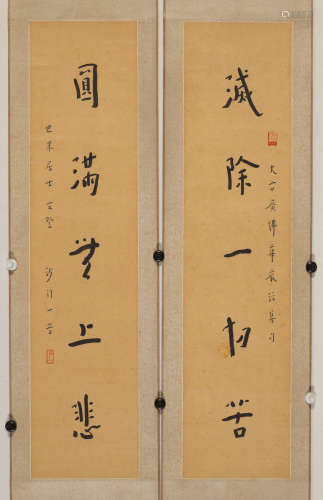 滅除一切苦
大方廣佛華嚴經集句
圓滿無上悲
世來居士 正腕
沙門一音